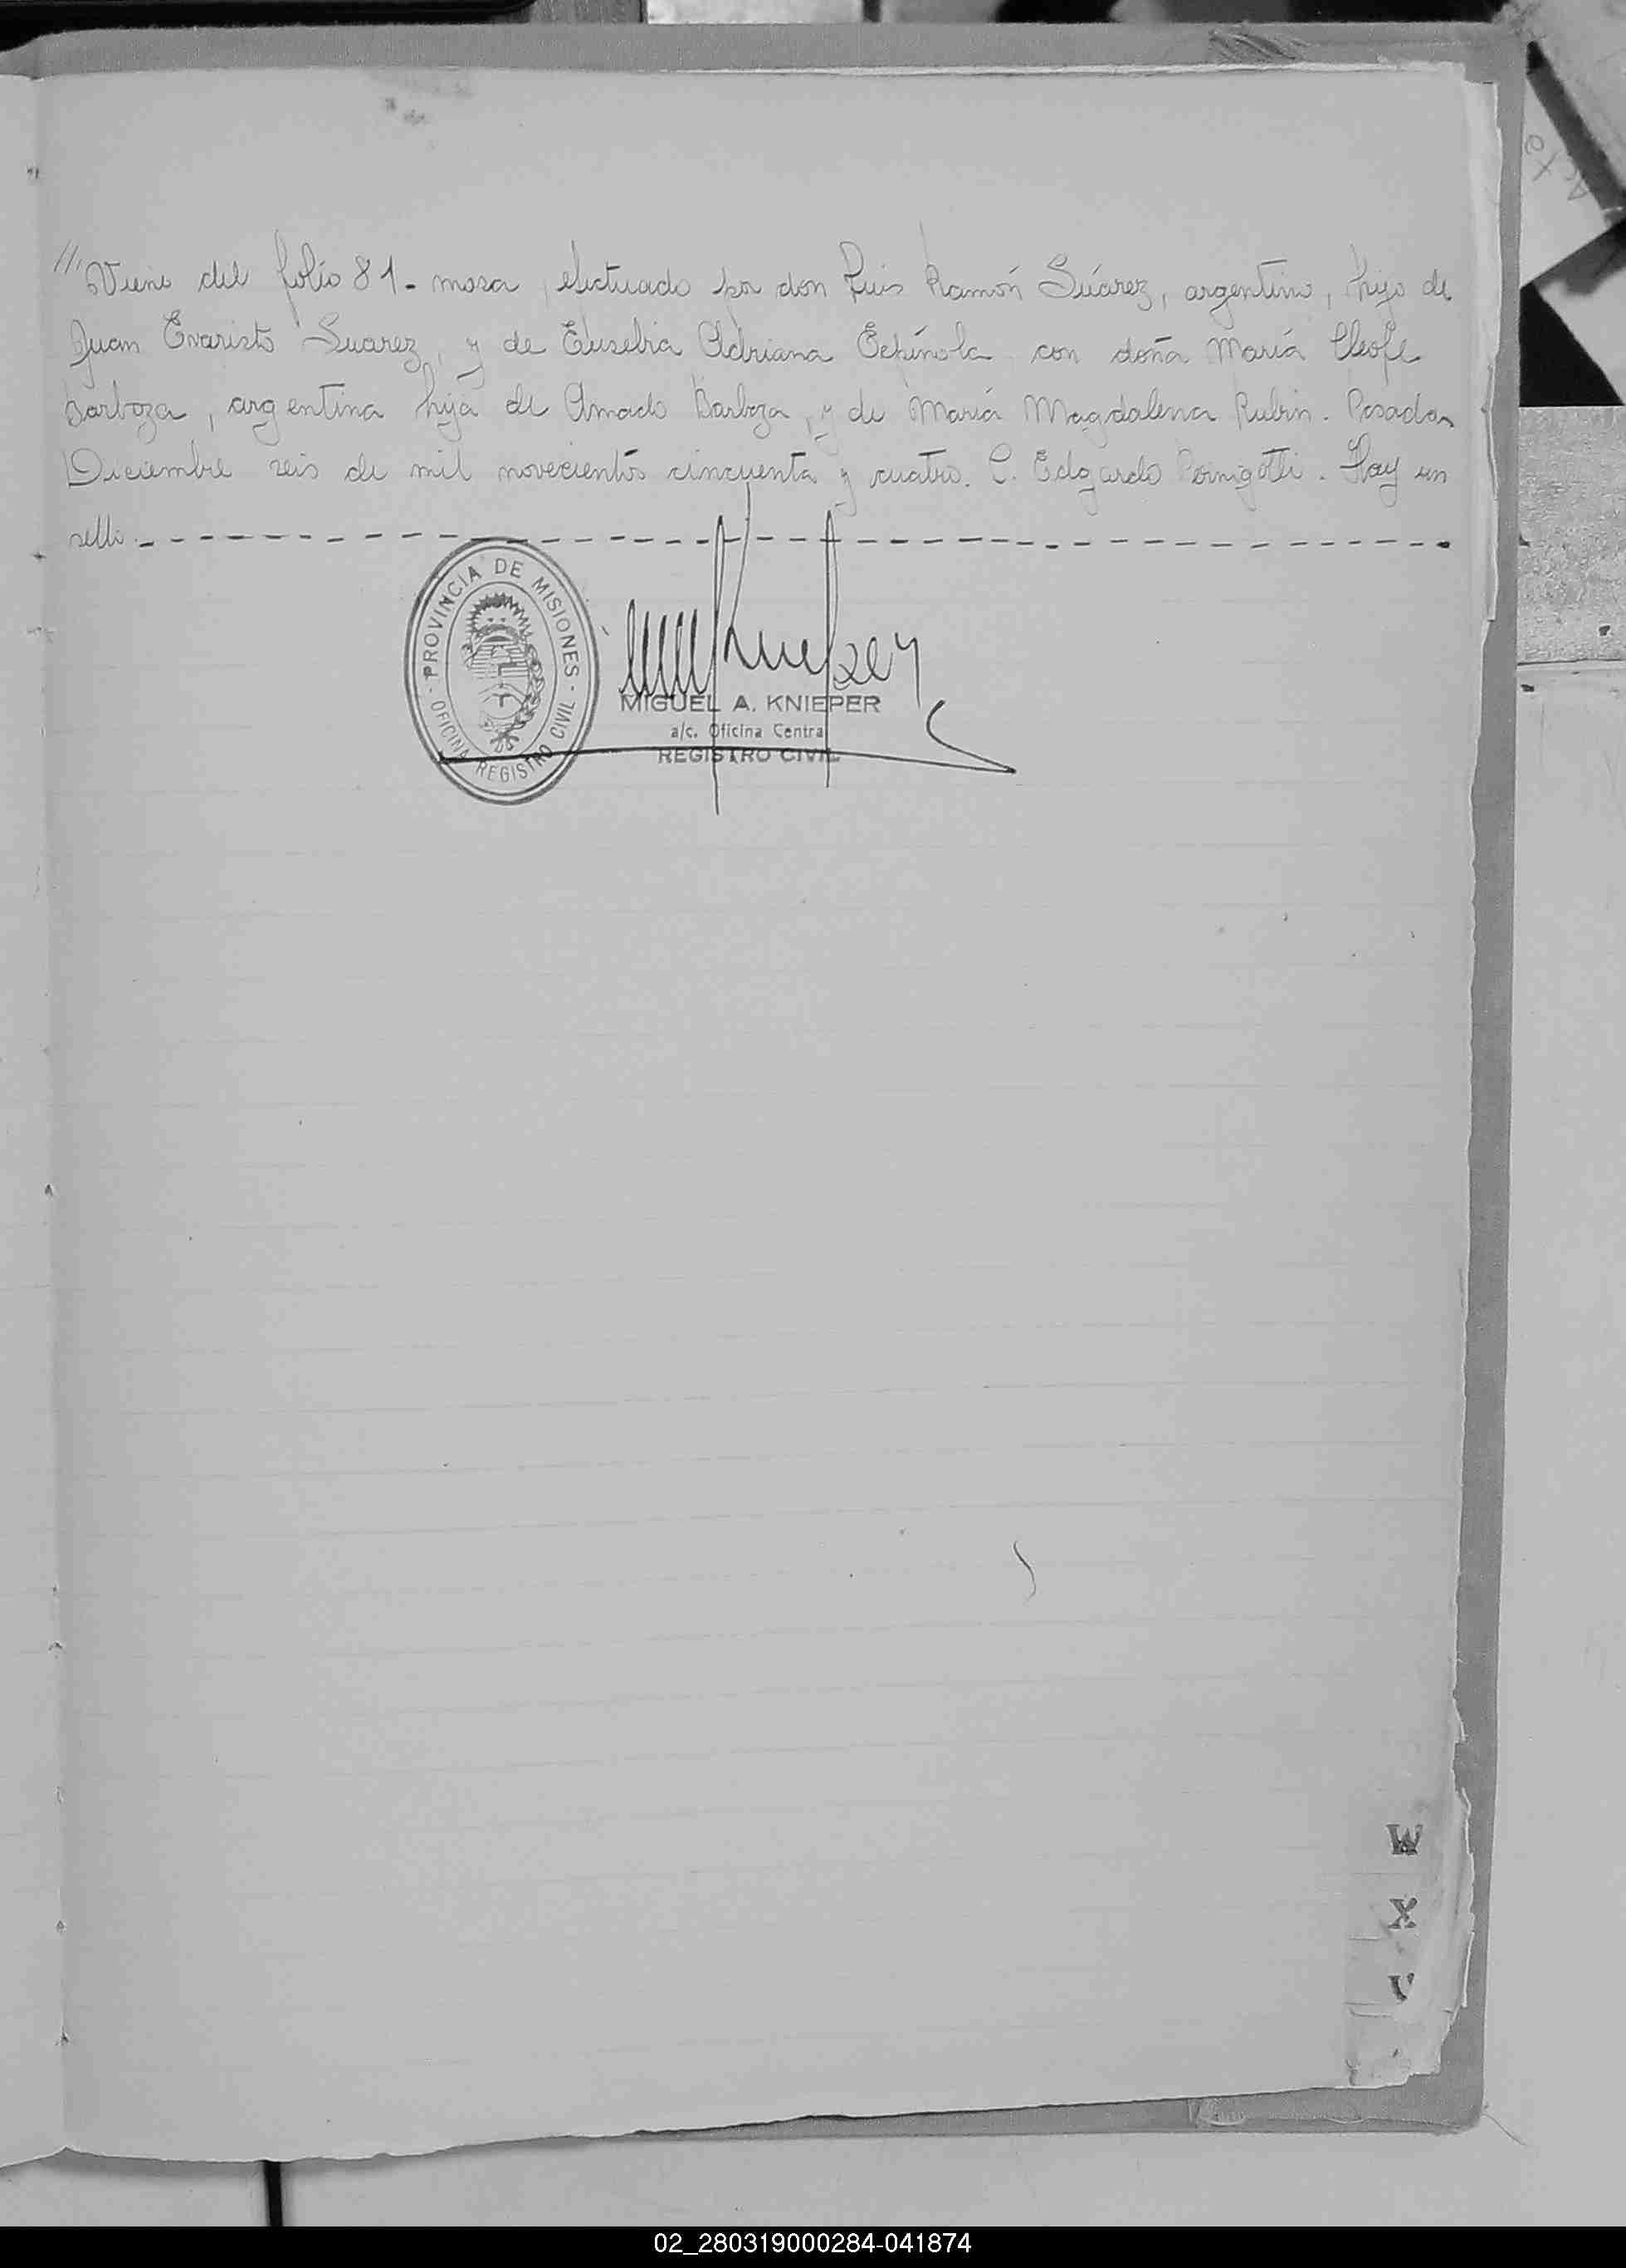 // Viene del folio 81 - mosa, efectuado por don Luis Ramón Súarez, argentino, hijo de
Juan Evaristo Suarez, y de Eusebia Adriana Echínola con doña María Cleofe
Barboza, argentina hija de Amado Barboza, y de María Magdalena Rubin. Posadas
Diciembre seis de mil novecientos cincuenta y cuatro. C. Edgardo Hay un
sello.
PROVINCIA DE MISIONES
OFICINA REGISTRO CIVIL
MIGUEL A. KNIEPER
a/c. Oficina Central
REGISTRO CIVIL
W
X
02_280319000284-041874